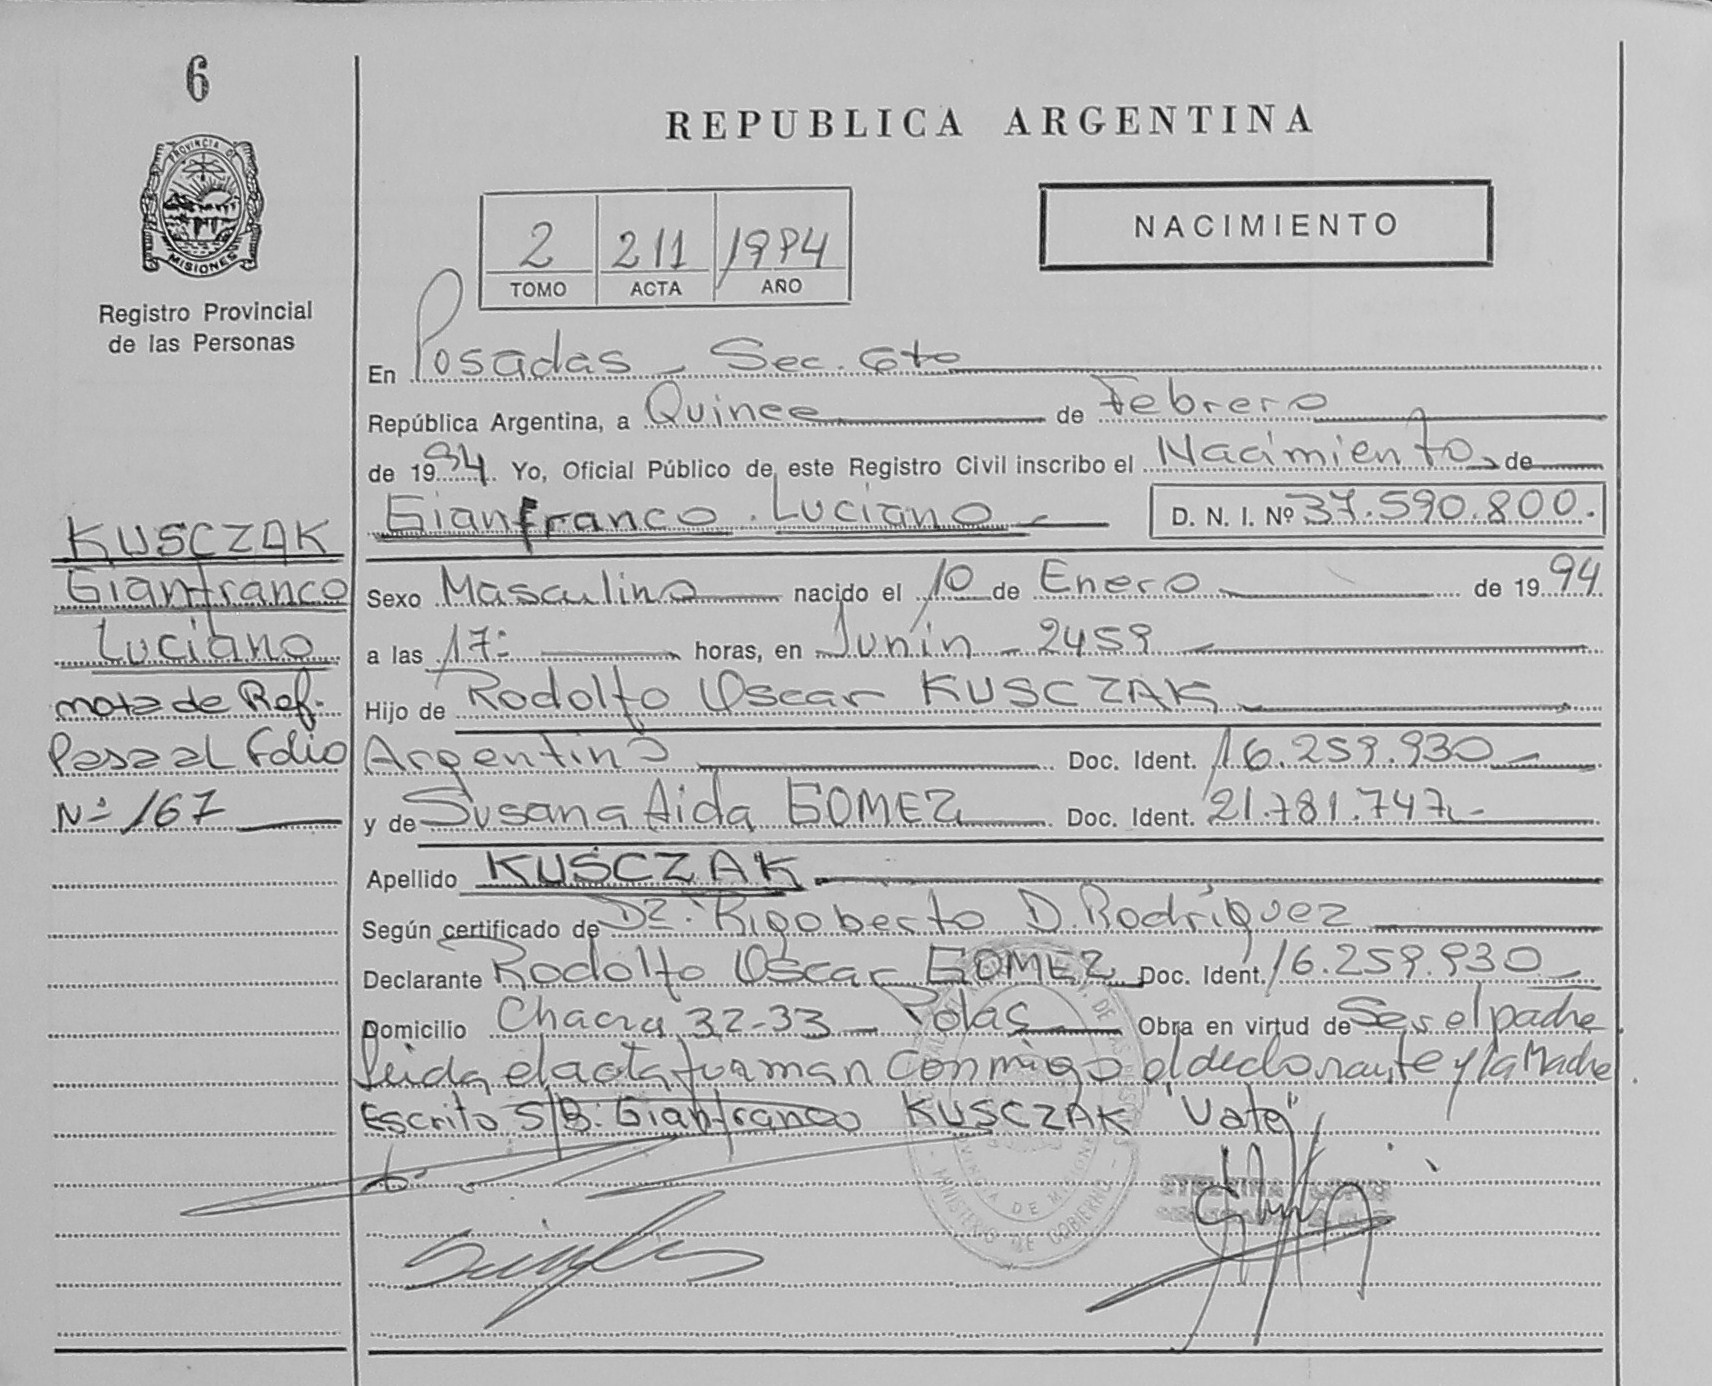 6
REPUBLICA ARGENTINA
PROVINCIA DE
MISIONES
Registro Provincial
de las Personas
2 211 1994
TOMO ACTA AÑO
NACIMIENTO
En Posadas - Sec. 6to
República Argentina, a Quince de Febrero
de 1994. Yo, Oficial Público de este Registro Civil inscribo el Nacimiento de
Gianfranco Luciano D. N. I. Nº 37.590.800.
KUSCZAK
Gianfranco
Luciano
nota de Ref.
Pasa al Folio
Nº 167
Sexo Masculino nacido el 10 de Enero de 1994
a las 17: horas, en Junín - 2459
Hijo de Rodolfo Oscar KUSCZAK
Argentino Doc. Ident. 16.259.930
y de Susana Aida GOMEZ Doc. Ident. 21.781.747
Apellido KUSCZAK
Según certificado de Dr. Rigoberto D. Rodríguez
Declarante Rodolfo Oscar GOMEZ Doc. Ident. 16.259.930
Domicilio Chacra 32-33 - Pdas Obra en virtud de Ser el padre
leida el acta firman conmigo el declarante y la Madre.
Escrito S/B: Gianfranco KUSCZAK "Vale"
PROVINCIA DE MISIONES
MINISTERIO DE GOBIERNO